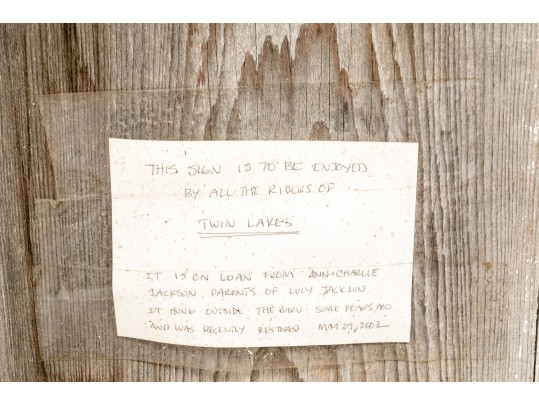 THIS SIGN IS TO BE ENJOYED
BY ALL THE RIDERS OF
TWIN LAKES
IT IS ON LOAN FROM ANN + CHARLIE
JACKSON, PARENTS OF LUCY JACKSON
IT HUNG OUTSIDE THE BARN SOME YEARS AGO
AND WAS RECENTLY RESTORED. MAY 27, 2002